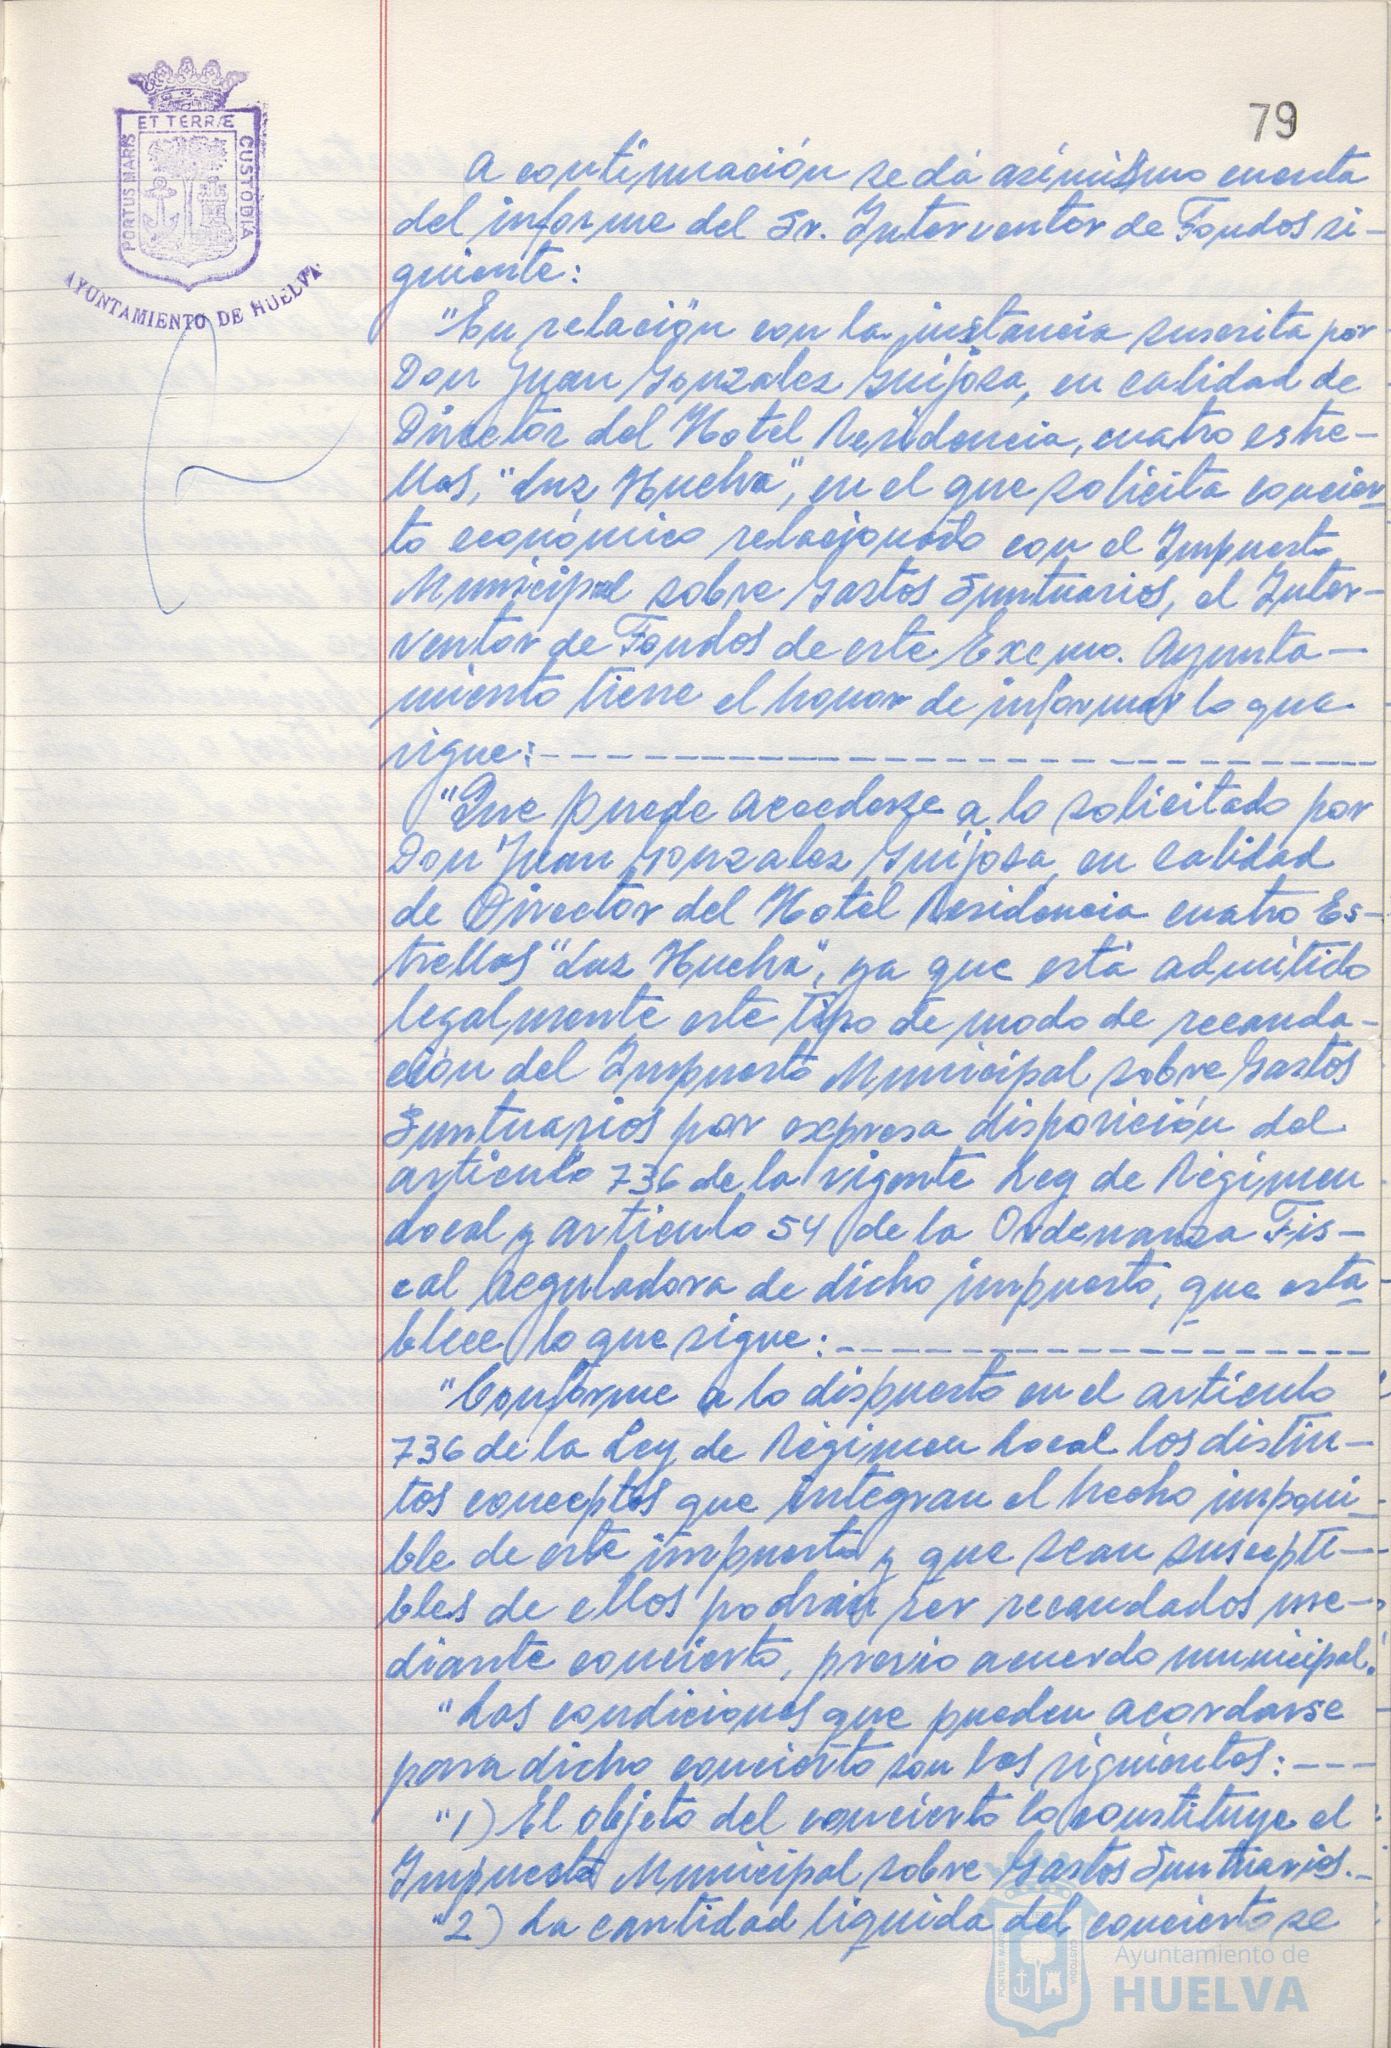 79
ET TERRÆ
PORTUS MARIS
CUSTODIA
AYUNTAMIENTO DE HUELVA
A continuación se dá asimismo cuenta
del informe del Sr. Interventor de Fondos si-
guiente:
"En relación con la instancia suscrita por
Don Juan Gonzalez Guijosa, en calidad de
Director del Hotel Residencia, cuatro estre-
llas, "Luz Huelva", en el que solicita concier-
to económico relacionado con el Impuesto
Municipal sobre Gastos Suntuarios, el Inter-
ventor de Fondos de este Excmo. Ayunta-
miento tiene el honor de informar lo que
sigue:- - - - - - - - - - - - - - - - - - - -
"Que puede accederse a lo solicitado por
Don Juan Gonzalez Guijosa, en calidad
de Director del Hotel Residencia cuatro Es-
trellas "Luz Huelva", ya que está admitido
legalmente este tipo de modo de recauda-
ción del Impuesto Municipal sobre Gastos
Suntuarios por expresa disposición del
articulo 736 de la vigente Ley de Régimen
Local y articulo 54 de la Ordenanza Fis-
cal Reguladora de dicho impuesto, que esta-
blece lo que sigue:- - - - - - - - - - - - -
"Conforme a lo dispuesto en el articulo
736 de la Ley de Régimen Local los distin-
tos conceptos que integran el hecho imponi-
ble de este impuesto y que sean suscepti-
bles de ellos podrán ser recaudados me-
diante concierto, previo acuerdo municipal.
"Las condiciones que pueden acordarse
para dicho concierto son las siguientes:- - -
"1) El objeto del concierto lo constituye el
Impuesto Municipal sobre Gastos Suntuarios.-
"2) La cantidad liquida del concierto se
Ayuntamiento de
HUELVA